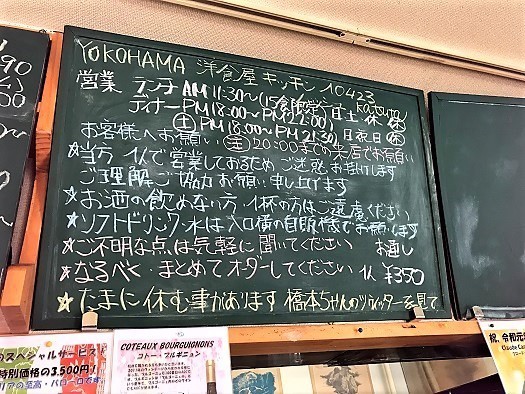 YOKOHAMA 洋食屋 キッチン 10423
営業 ランチ AM 11:30〜(15食限定) 土 休
ディナー PM 18:00〜PM 22:00)
(土) PM 18:00〜PM 21:30) 日祝日 休
お客様へお願い 20:00までの来店でお願い
★当方 1人で営業しておるため ご迷惑お掛けします
ご理解 ご協力お願い申し上げます
★お酒の飲めない方 1杯の方はご遠慮ください
★ソフトドリンク・水は入口横の自販機でお願いします
★ご不明な点は気軽に聞いてください お通し
★なるべく・まとめてオーダーしてください 1人 ¥350
★たまに休む事があります 橋本ちゃんのツイッターを見て
スペシャルサービス!
特別価格の3,500円!
リアの至高・バローロです
COTEAUX BOURGUIGNONS
コトー・ブルギニョン
祝、令和元